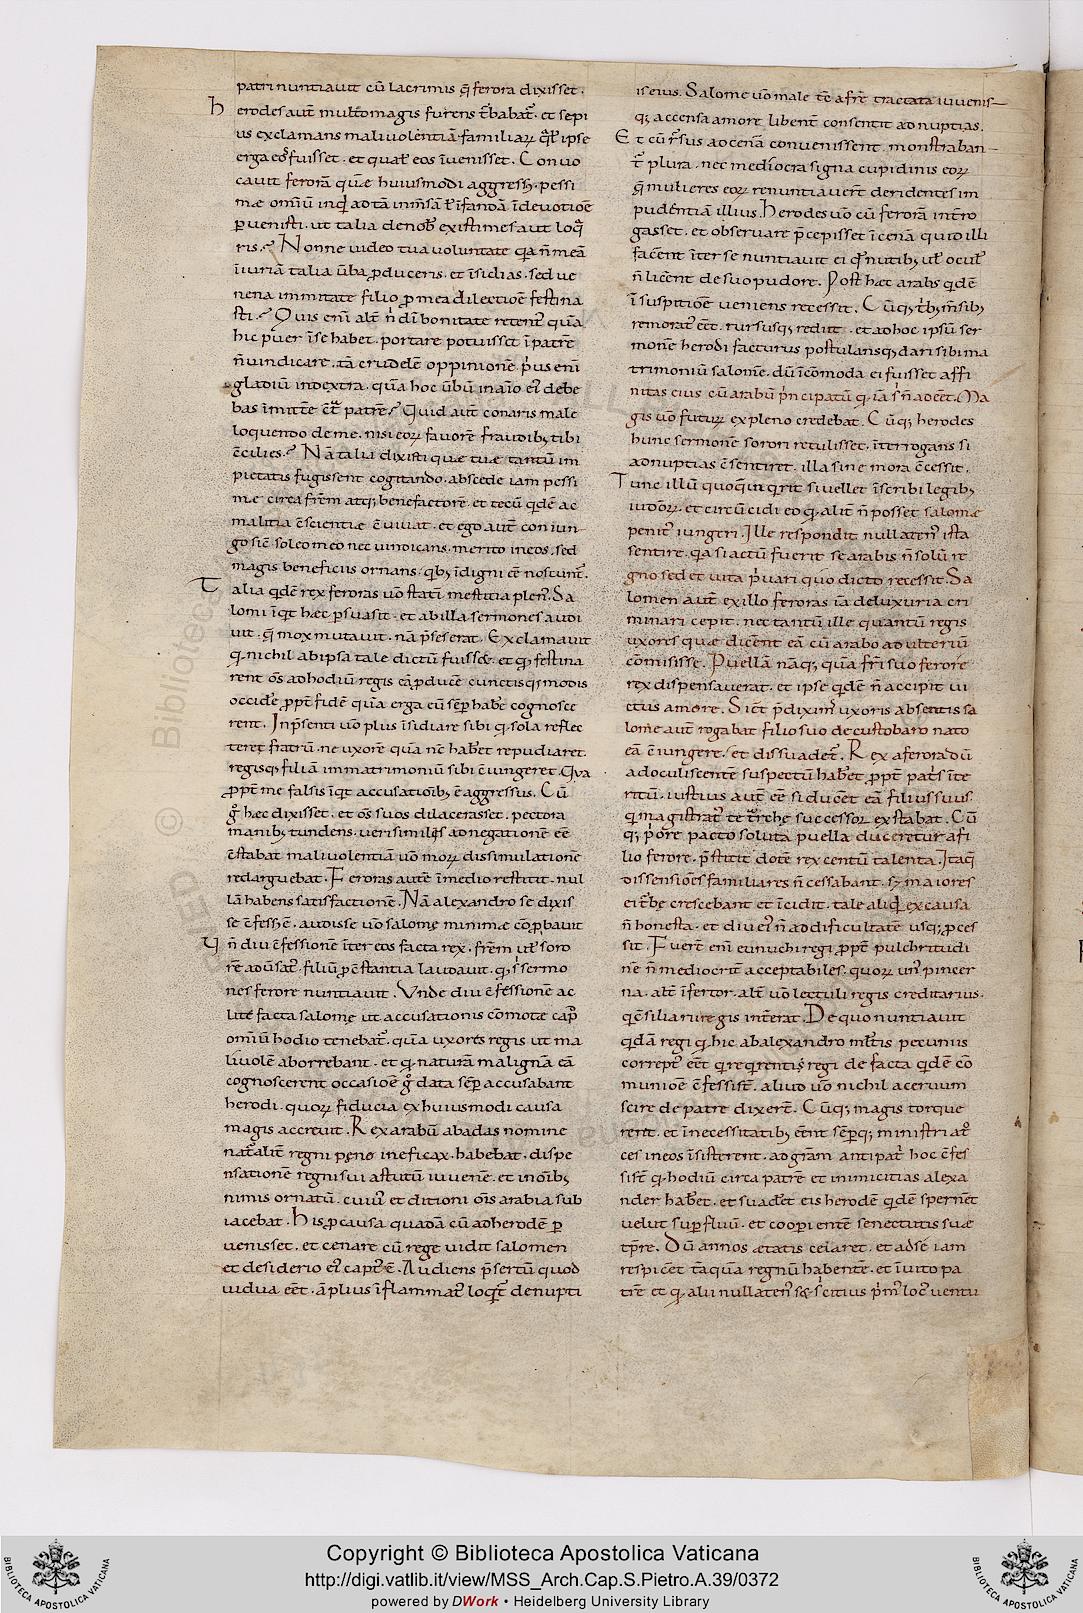 patri nuntiavit cū lacrimis q̄ ferora dixisset.
herodes aut̄ multo magis furens t̄babat̄. et sepi
us exclamans malivolentiā familiarꝝ q̄l ipse
erga eos fuisset. et qual̄ eos īvenisset. Convo
cavit ferorā quē huiusmodi aggressꝰ. pessi
mæ omniū
pervenisti. ut talia de nob̄ existimes aut loq̄
ris. Nonne video tua voluntate q̄a n̄ meā
īiuriā talia v̄ba ꝓduceris. et īsidias. sed ve
nena immitate filio ꝓ mea dilectioē festina
sti. Quis enī alt̄ n̄ dī bonitate retent̄ quā
hic puer īse habet. portare potuisset ī patrē
n̄ vindicare. tā crudelē oppinionē. p̄us enī
gladiū in dextra. quā hoc v̄bū in aīo eī debe
bas īmittē c̄t̄ patrē. Quid aut̄ conaris male
loquendo de me. nisi eorꝝ favorē fraudibꝫ tibi
c̄cilies. Nā talia dixisti quæ tuæ tantū im
pietatis fugissent cogitando. abscede iam pessi
mæ circa fr̄em atqꝫ benefactorē. et tecū q̄dē ac
malitia c̄scientiæ c̄vivat. et ego aut̄ con iun
go sic̄ soleo meo nec vindicans. merito in eos. sed
magis beneficiis ornans. qꝫ īdigni c̄e noscunt̄.
Talia q̄dē rex feroras v̄o statī mestitia plenꝰ. Sa
lomi īq̄t hæc ꝑsuasit. et ab illa sermones audi
vit. q̄ mox mutavit. nā p̄sens erat. Exclamavit
q̄ nichil ab ipsa tale dictū fuisset. et q̄ festina
rent oēs ad hodiū regis eā ꝑducē cunctisqꝫ modis
occidē propt̄ fidē quā erga eū sēp habē cognosce
rent. In p̄senti v̄o plus īsidiare sibi q̄ sola reflec
teret fratrū. ne uxorē quā nc̄ habet̄ repudiaret.
regisqꝫ filiā in matrimoniū sibi c̄iungeret. Qua
ꝓpt̄ me falsis īq̄t accusatioībꝫ ē aggressus. Cū
g° hæc dixisset. et oēs suos dilacerasset. pectora
manibꝫ tundens. verisimilis ad negationē eē
c̄stabat malivolentiā v̄o morꝝ dissimulationē
redarguebat. Feroras autē ī medio restitit. nul
lā habens satisfactionē. Nā alexandro se dixis
se c̄fessꝰ ē. audisse v̄o salomę minimæ cōprobavit
Tn̄ diu c̄fessionē īter eos facta rex. fr̄em ut̄ soro
rē adv̄sat̄. filiū ꝓ c̄stantia laudavit. q̄ s̄i sermo
nes ferore nuntiavit. Unde diu c̄fessionē ac
lite facta salomę ut accusationis cōmotæ cap̄
omīū hodio tenebat̄. quā uxores regis ut ma
livolē aborrebant. et q̄ naturā malignā eā
cognoscerent occasioē g° data sēp accusabant
herodi. quorꝝ fiducia ex huiusmodi causa
magis accrevit. Rex arabū abadas nomine
nat̄alit̄ regni pene ineficax. habebat. dispe
nsationē regni sui astutū iuvenē. et in oībꝫ
nimis ornatū. cuiꝰ et ditioni oīs arabia sub
iacebat. His ꝓ causa quadā cū ad herodē ꝑ
venisset. et cenare cū rege vidit salomen
et desiderio eī capt̄ ē. Audiens p̄sertū quod
vidua eēt. āplius īflammat̄ loq̄t̄ de nupti
is eius. Salome v̄o male tē a fr̄e tractata iuvenis
qꝫ accensa amore libent̄ consentit ad nuptias.
Et cū r̄sus ad cenā convenissent. monstraban
t̄ plura. nec mediocra signa cupidinis eorꝝ
q̄ mulieres eorꝝ renuntiavert̄ deridentes im
pudentiā illius. Herodes v̄o cū ferorā int̄ro
gasset. et observare p̄cepisset ī cenā quid illi
facent̄ īter se nuntiavit ei q̄ nutibꝫ ut̄ ocul̄
n̄ licent̄ de suo pudore. Post hæc arabs q̄dē
ī suspitioē veniens recessit. Cūqꝫ t̄bꝫ m̄sibꝫ
remorat̄ eēt. rursusqꝫ rediit. et ad hoc ipsū ser
monē herodi facturus postulansqꝫ dari sibi ma
trimoniū salomē. dū īcōmoda ei fuisset affi
nitas eius cū arabū p̄ncipatū q̄ iā s̄i n̄ adeēt. Ma
gis v̄o futurꝝ ex pleno credebat. Cūqꝫ herodes
hunc sermonē sorori retulisset. īterrogans si
ad nuptias c̄sentiret. illa sine mora c̄cessit.
Tunc illū quoqꝫ inq̄rit si vellet īscribi legibꝫ
iudeorꝝ. et circūcidi eo q̄ alit̄ n̄ posset salomæ
penit̄ iungeri. Ille respondit nullatenꝰ ista
sentire. q̄a si actū fuerit se arabis n̄ solū re
gno sed et vita p̄vari quo dicto recessit. Sa
lomen aut̄ ex illo feroras iā de luxuria cri
minari cepit. nec tantū ille quantū regis
uxores quæ dicent̄ eā cū arabo adulteriū
cōmisisse. Puellā nāqꝫ quā fr̄i suo ferore
rex dispensaverat. et ipse q̄dē n̄ accipit vi
ctus amore. Sic̄t p̄diximꝰ uxoris absentis sa
lome aut̄ rogabat filio suo de custobaro nato
eā c̄iungere. et dissuadet̄. Rex a ferora dū
adoculiscentē suspectū habet̄ propt̄ pat̄s īte
ritū. iustius aut̄ eē si ducet̄ eā filius suus.
q̄ magistrat̄ tet̄rche successor exstabat. Cū
qꝫ p̄ore pacto soluta puella duceretur a fi
lio ferore. p̄stitit dotē rex centū talenta. Itaq̄
dissensioēs familiares n̄ cessabant. sꝫ maiores
ei t̄be crescebant et īcidit. tale aliq̄d ex causa
n̄ honesta. et diu eī n̄ ad dificultatē usqꝫ ꝓces
sit. Fuerē enī eunuchi regi ꝓpt̄ pulchritudi
nē n̄ mediocrit̄ acceptabiles. quorꝝ unꝰ pincer
na. alt̄ īfertor. alt̄ v̄o lectuli regis creditarius.
q̄ c̄siliarii regis int̄erat. De quo nuntiavit
q̄dā regi q̄ hic ab alexandro ml̄tis pecuniis
correptꝰ eēt q̄ reqrentis regi de facta q̄dē cō
munioē c̄fessist̄. aliud v̄o nichil acervum
scire de patre dixert̄. Cūqꝫ magis torque
rent. et ī necessitatibꝫ eēnt sēpqꝫ ministri at̄
ces in eos īsisterent. ad grām antipat̄ hoc c̄fes
sist̄ q̄ hodiū circa patrē et inimicitias alexa
nder habet̄. et suadet̄ eis herodē q̄dē spernēt
velut superfluū. et cooꝑientē senectutis suæ
tp̄re. Dū annos ætatis celaret. et ad se iam
respicēt tāquā regnū habentē. et īvito pa
trē et q̄ alii nullatenꝰ sꝫ s̄i citius p̄mꝰ locꝰ ventu
Copyright © Biblioteca Apostolica Vaticana
http://digi.vatlib.it/view/MSS_Arch.Cap.S.Pietro.A.39/0372
powered by DWork • Heidelberg University Library
BIBLIOTECA APOSTOLICA VATICANA
BIBLIOTECA APOSTOLICA VATICANA